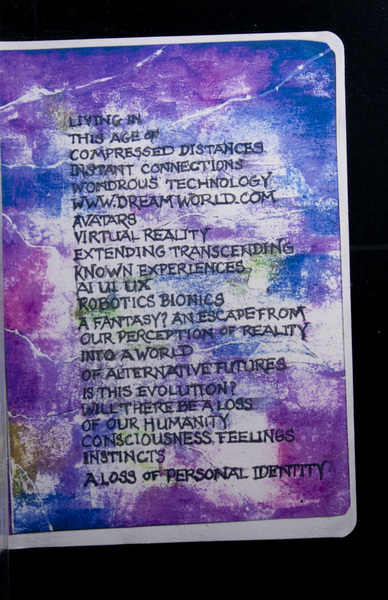 LIVING IN
THIS AGE OF
COMPRESSED DISTANCES
INSTANT CONNECTIONS
WONDROUS TECHNOLOGY
WWW.DREAMWORLD.COM
AVATARS
VIRTUAL REALITY
EXTENDING TRANSCENDING
KNOWN EXPERIENCES
AI UI UX
ROBOTICS BIONICS
A FANTASY? AN ESCAPE FROM
OUR PERCEPTION OF REALITY
INTO A WORLD
OF ALTERNATIVE FUTURES
IS THIS EVOLUTION?
WILL THERE BE A LOSS
OF OUR HUMANITY
CONSCIOUSNESS FEELINGS
INSTINCTS
A LOSS OF PERSONAL IDENTITY?